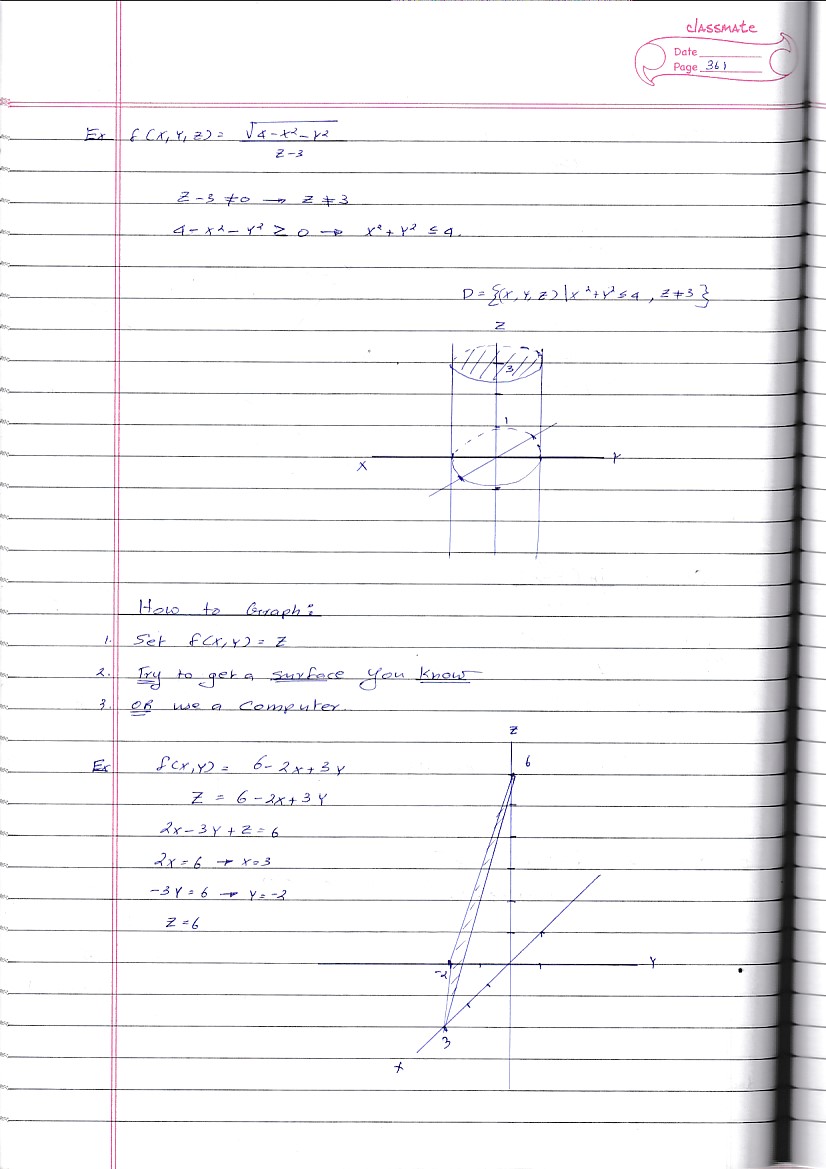 classmate
Date
Page 361
Ex f(x, y, z) = √4-x²-y² / z-3
z-3 ≠0 → z ≠3
4-x²-y² ≥ 0 → x²+y² ≤ 4.
D = {(x, y, z) | x²+y²≤4, z≠3}
z
3
1
x
y
How to Graph:
1. Set f(x, y) = z
2. Try to get a surface you know
3. OR use a computer.
z
6
Ex f(x,y) = 6-2x+3y
z = 6-2x+3y
2x-3y+z=6
2x=6 → x=3
-3y=6 → y=-2
z=6
y
-2
3
x